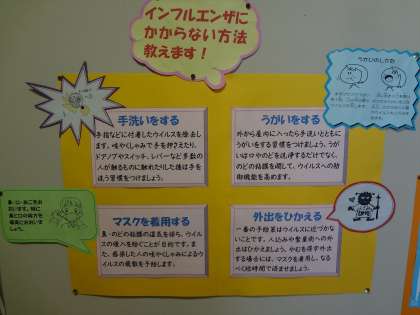 インフルエンザに
かからない方法
教えます！
うがいのしかた
手洗いをする
手指などに付着したウイルスを除去しま
す。咳やくしゃみで手を押さえたり、
ドアノブやスイッチ、レバーなど多数の
人が触るものに触れたりした後は手を
洗う習慣をつけましょう。
うがいをする
外から屋内に入ったら手洗いとともに
うがいをする習慣をつけましょう。う
がいは口やのどを洗浄するだけでなく、
のどの粘膜を潤して、ウイルスへの防
御機能を高めます。
鼻・口・あごをお
おいます。特に
鼻と口の両方を
確実におおいま
しょう。
マスクを着用する
鼻・のどの粘膜の湿気を保ち、ウイルス
の侵入を防ぐことが目的です。ま
た、感染した人の咳やくしゃみによるウ
イルスの飛散を予防します。
外出をひかえる
一番の予防策はウイルスに近づかな
いことです。人込みや繁華街への外
出はひかえましょう。やむを得ず外出
する場合には、マスクを着用し、なる
べく短時間で済ませましょう。